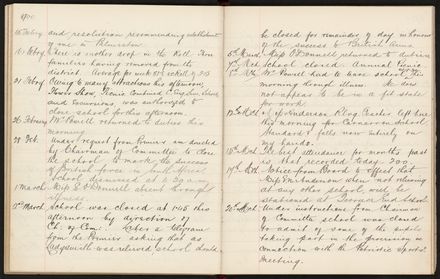 1900
15 Febry and resolution recommending establishment
of one in Blenheim.
16 Febry There is another drop in the Roll. Four
families having removed from the
district. Average for week 188 on Roll of 213
21 Febry Owing to many attractions this afternoon,
Flower Show, Picnic Conducted
and Excursions, was authorised to
close school for this afternoon.
26 February Mr Powell returned to duties this
morning.
28 Feb. Under request from Premier as directed
by Chairman of Committee to close
the school to mark the success
of British forces in South Africa
School dismissed at 2.20 p.m.
1 March Miss E. O'Donnell absent through
illness
2nd March School was closed at 1.45 this
afternoon by direction of
Ch. of Com. Later a telegram
from the Premier asking that as
Ladysmith was relieved school should
be closed for remainder of day in honour
of the success to British Arms
5th March Miss O'Donnell returned to duties
7th Mch School closed. Annual Picnic
9th Mch Mr Powell had to leave school this
morning through illness. He does
not appear to be in a fit state
for work.
12th Mch Mr J. Anderson, Relieving Teacher left here
this morning for Canvastown School.
Standard V falls now entirely on
my hands.
15th Mch The best attendance for months past
is that recorded today 200.
19th Mch Notice from Board to effect that
Miss M. Anderson when not relieving
at any other school, will be
stationed at
20th Mch Under instructions from Chairman
of Committee school was closed
to admit of some of the pupils
taking part in the procession in
connection with the Patriotic Sports
meeting.